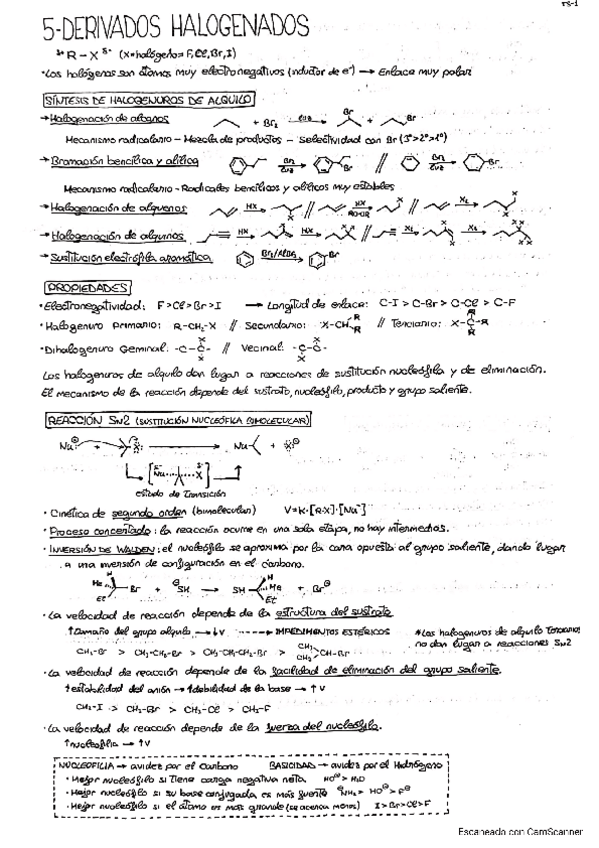 5-DERIVADOS HALOGENADOS
δ+ R - X δ- (X=halógeno= F, Cl, Br, I)
·Los halógenos son átomos muy electronegativos (inductor de e-) → Enlace muy polar
SÍNTESIS DE HALOGENUROS DE ALQUILO
→Halogenación de alcanos + Br2 luz Br + Br
Mecanismo radicalario - Mezcla de productos - Selectividad con Br (3º>2º>1º)
→Bromación bencílica y alílica Br2 luz Br // Br2 luz Br
Mecanismo radicalario - Radicales bencílicos y alílicos muy estables
→Halogenación de alquenos HX X // HX ROOR X // X2 X X
→Halogenación de alquinos HX X HX X X // X2 X X X2 X X X X
→Sustitución electrófila aromática Br2/AlBr3 Br
PROPIEDADES
·Electronegatividad: F>Cl>Br>I → Longitud de enlace: C-I > C-Br > C-Cl > C-F
·Halogenuro Primario: R-CH2-X // Secundario: X-CH R R // Terciario: X-C R R R
·Dihalogenuro Geminal: -C-C- X X // Vecinal: -C-C- X X
Los halogenuros de alquilo dan lugar a reacciones de sustitución nucleófila y de eliminación.
El mecanismo de la reacción depende del sustrato, nucleófilo, producto y grupo saliente.
REACCIÓN SN2 (SUSTITUCIÓN NUCLEÓFILA BIMOLECULAR)
Nu:⊖ + X: → Nu + :X:⊖
[Nu X]
estado de Transición
· Cinética de segundo orden (bimolecular) V=K·[R-X]·[Nu-]
· Proceso concertado: la reacción ocurre en una sola etapa, no hay intermedios.
· INVERSIÓN DE WALDEN: el nucleófilo se aproxima por la cara opuesta al grupo saliente, dando lugar
a una inversión de configuración en el carbono.
Me H Et Br + ⊖SH → SH H Me Et + Br⊖
· La velocidad de reacción depende de la estructura del sustrato
↑Tamaño del grupo alquilo → ↓V → IMPEDIMENTOS ESTÉRICOS *Los halogenuros de alquilo Terciarios
no dan lugar a reacciones SN2
CH3-Br > CH3-CH2-Br > CH3-CH2-CH2-Br > CH3 CH3 CH-Br
· La velocidad de reacción depende de la facilidad de eliminación del grupo saliente.
↑estabilidad del anión → ↑debilidad de la base → ↑V
CH3-I > CH3-Br > CH3-Cl > CH3-F
· La velocidad de reacción depende de la fuerza del nucleófilo.
↑nucleofilia → ↑V
NUCLEOFILIA → avidez por el Carbono BASICIDAD → avidez por el Hidrógeno
· Mejor nucleófilo si Tiene carga negativa neta HO⊖ > H2O
· Mejor nucleófilo si su base conjugada es más fuerte ⊖NH2 > HO⊖ > F⊖
· Mejor nucleófilo si el átomo es más grande I > Br > Cl > F
Escaneado con CamScanner